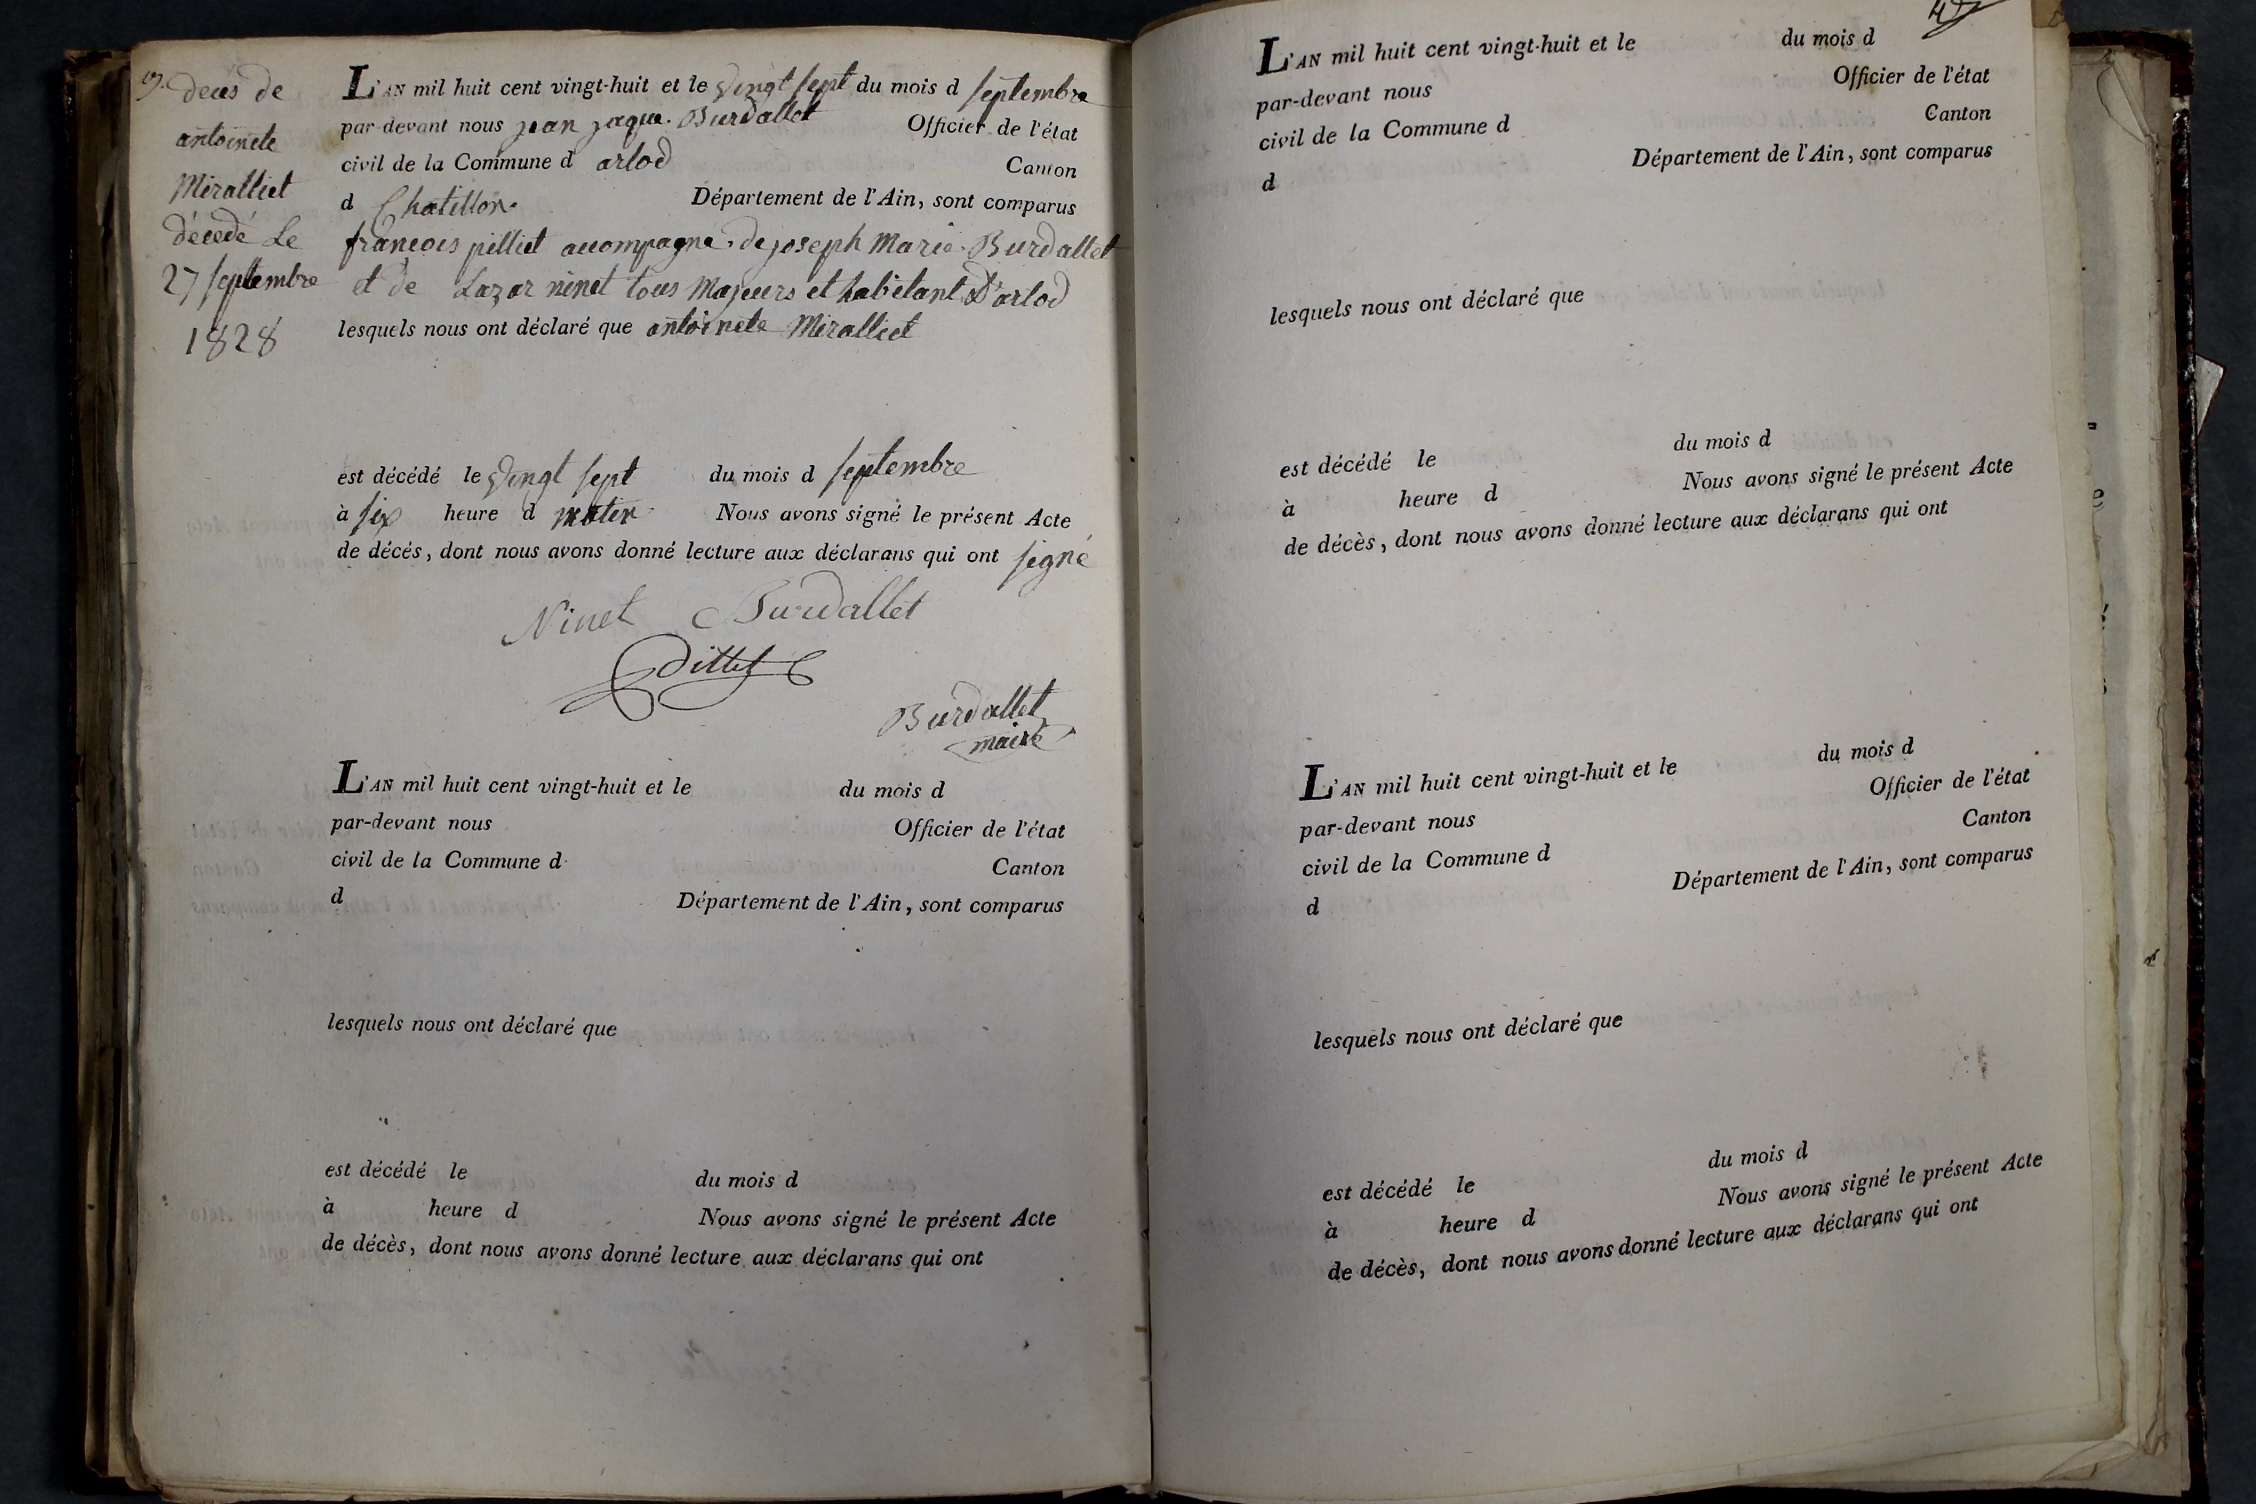 19.
deces de
antoinete
Miralliet
décedé Le
27 septembre
1828
L'AN mil huit cent vingt-huit et le vingt sept du mois d septembre
par-devant nous jean jaque Burdallet Officier de l'état
civil de la Commune d arlod Canton
d Chatillon Département de l'Ain, sont comparus
francois pilliet acompagné de joseph Marie Burdallet
et de Lazar ninet tous Majeurs et habitant D'arlod
lesquels nous ont déclaré que antoinete Miralliet
est décédé le vingt sept du mois d septembre
à six heure d matin Nous avons signé le présent Acte
de décès, dont nous avons donné lecture aux déclarans qui ont signé
Ninet Burdallet
Burdallet
maire
L'AN mil huit cent vingt-huit et le du mois d
par-devant nous Officier de l'état
civil de la Commune d Canton
d Département de l'Ain, sont comparus
lesquels nous ont déclaré que
est décédé le du mois d
à heure d Nous avons signé le présent Acte
de décès, dont nous avons donné lecture aux déclarans qui ont
L'AN mil huit cent vingt-huit et le du mois d
par-devant nous Officier de l'état
civil de la Commune d Canton
d Département de l'Ain, sont comparus
lesquels nous ont déclaré que
est décédé le du mois d
à heure d Nous avons signé le présent Acte
de décès, dont nous avons donné lecture aux déclarans qui ont
L'AN mil huit cent vingt-huit et le du mois d
par-devant nous Officier de l'état
civil de la Commune d Canton
d Département de l'Ain, sont comparus
lesquels nous ont déclaré que
est décédé le du mois d
à heure d Nous avons signé le présent Acte
de décès, dont nous avons donné lecture aux déclarans qui ont